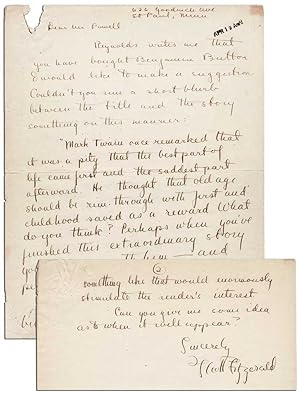 626 Goodrich Ave
St Paul, Minn
Dear Mr Powell
Reynolds writes me that
you have bought Benjamin Button
& would like to make a suggestion
Couldn't you run a short blurb
between the title and the story
something on this manner:
"Mark Twain once remarked that
it was a pity that the best part of
life came first and the saddest part
afterward. He thought that old age
should be run through with first and
childhood saved as a reward What
do you think? Perhaps when you've
finished this extraordinary story
and
②
something like that would enormously
stimulate the reader's interest
Can you give me some idea
as to when it will appear?
Sincerely
F Scott Fitzgerald